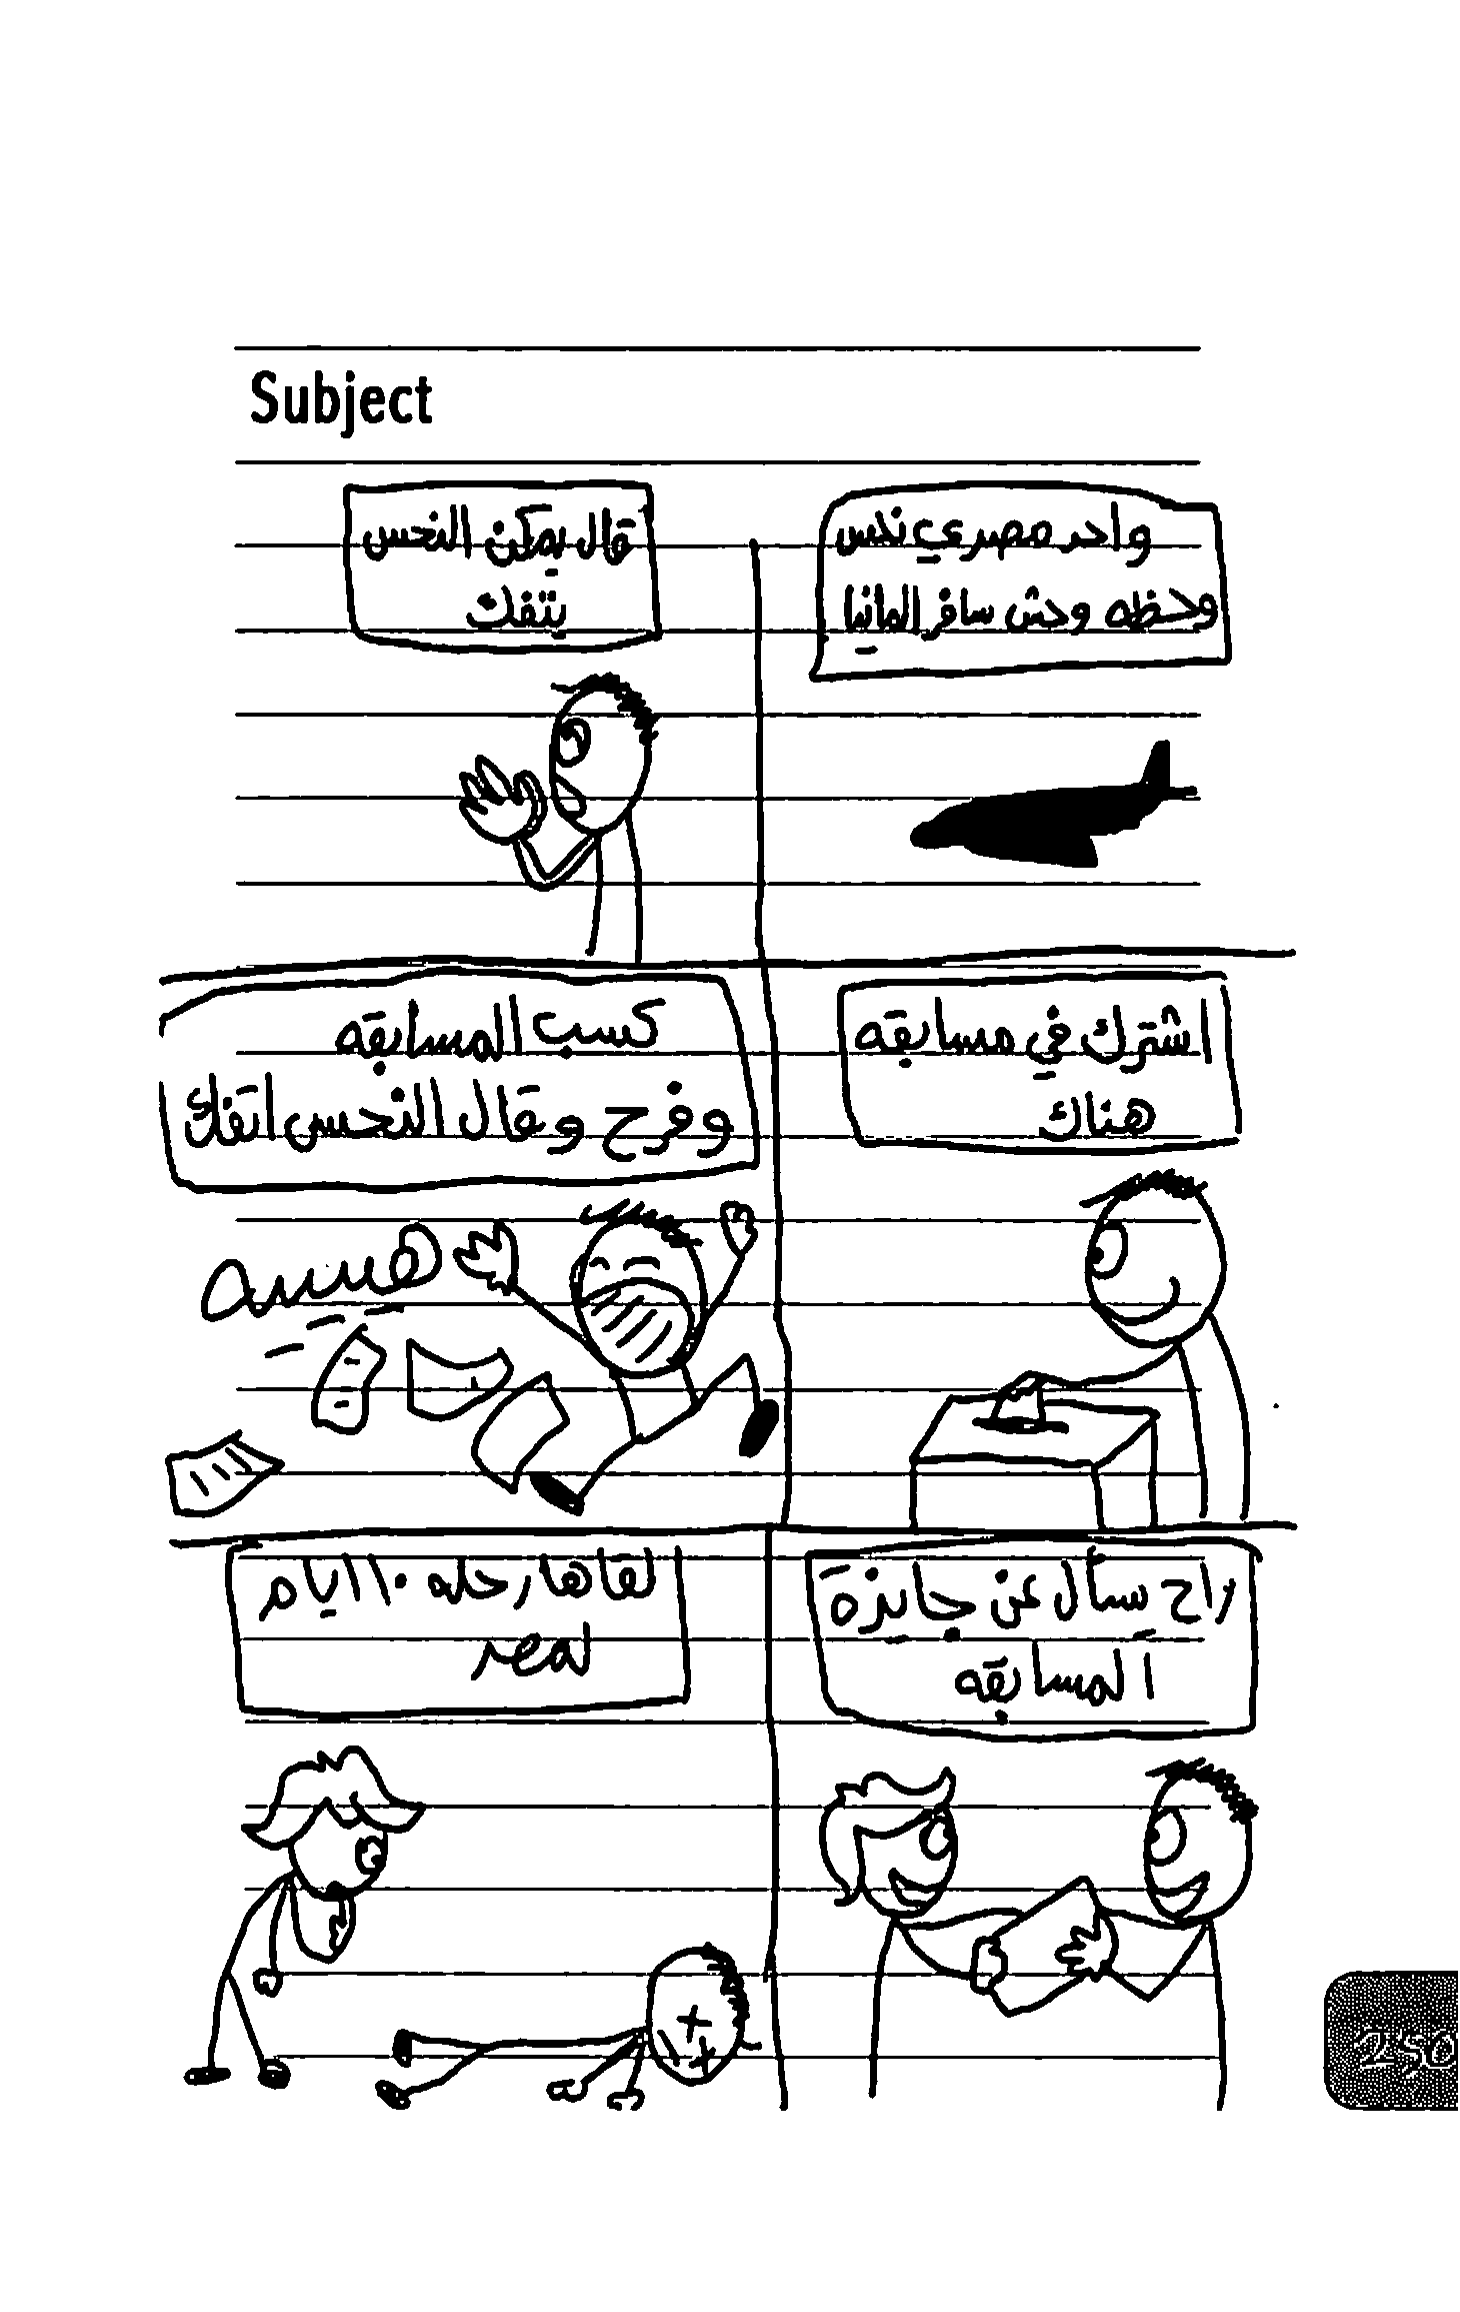 Subject
واحد مصري نحس
وحظه وحش سافر المانيا
قال يمكن النحس
يتفك
اشترك في مسابقه
هناك
كسب المسابقه
وفرح وقال النحس اتفك
هييييه
راح يسأل عن جايزة
المسابقه
لقاها رحله ١٠ ايام
لمصر